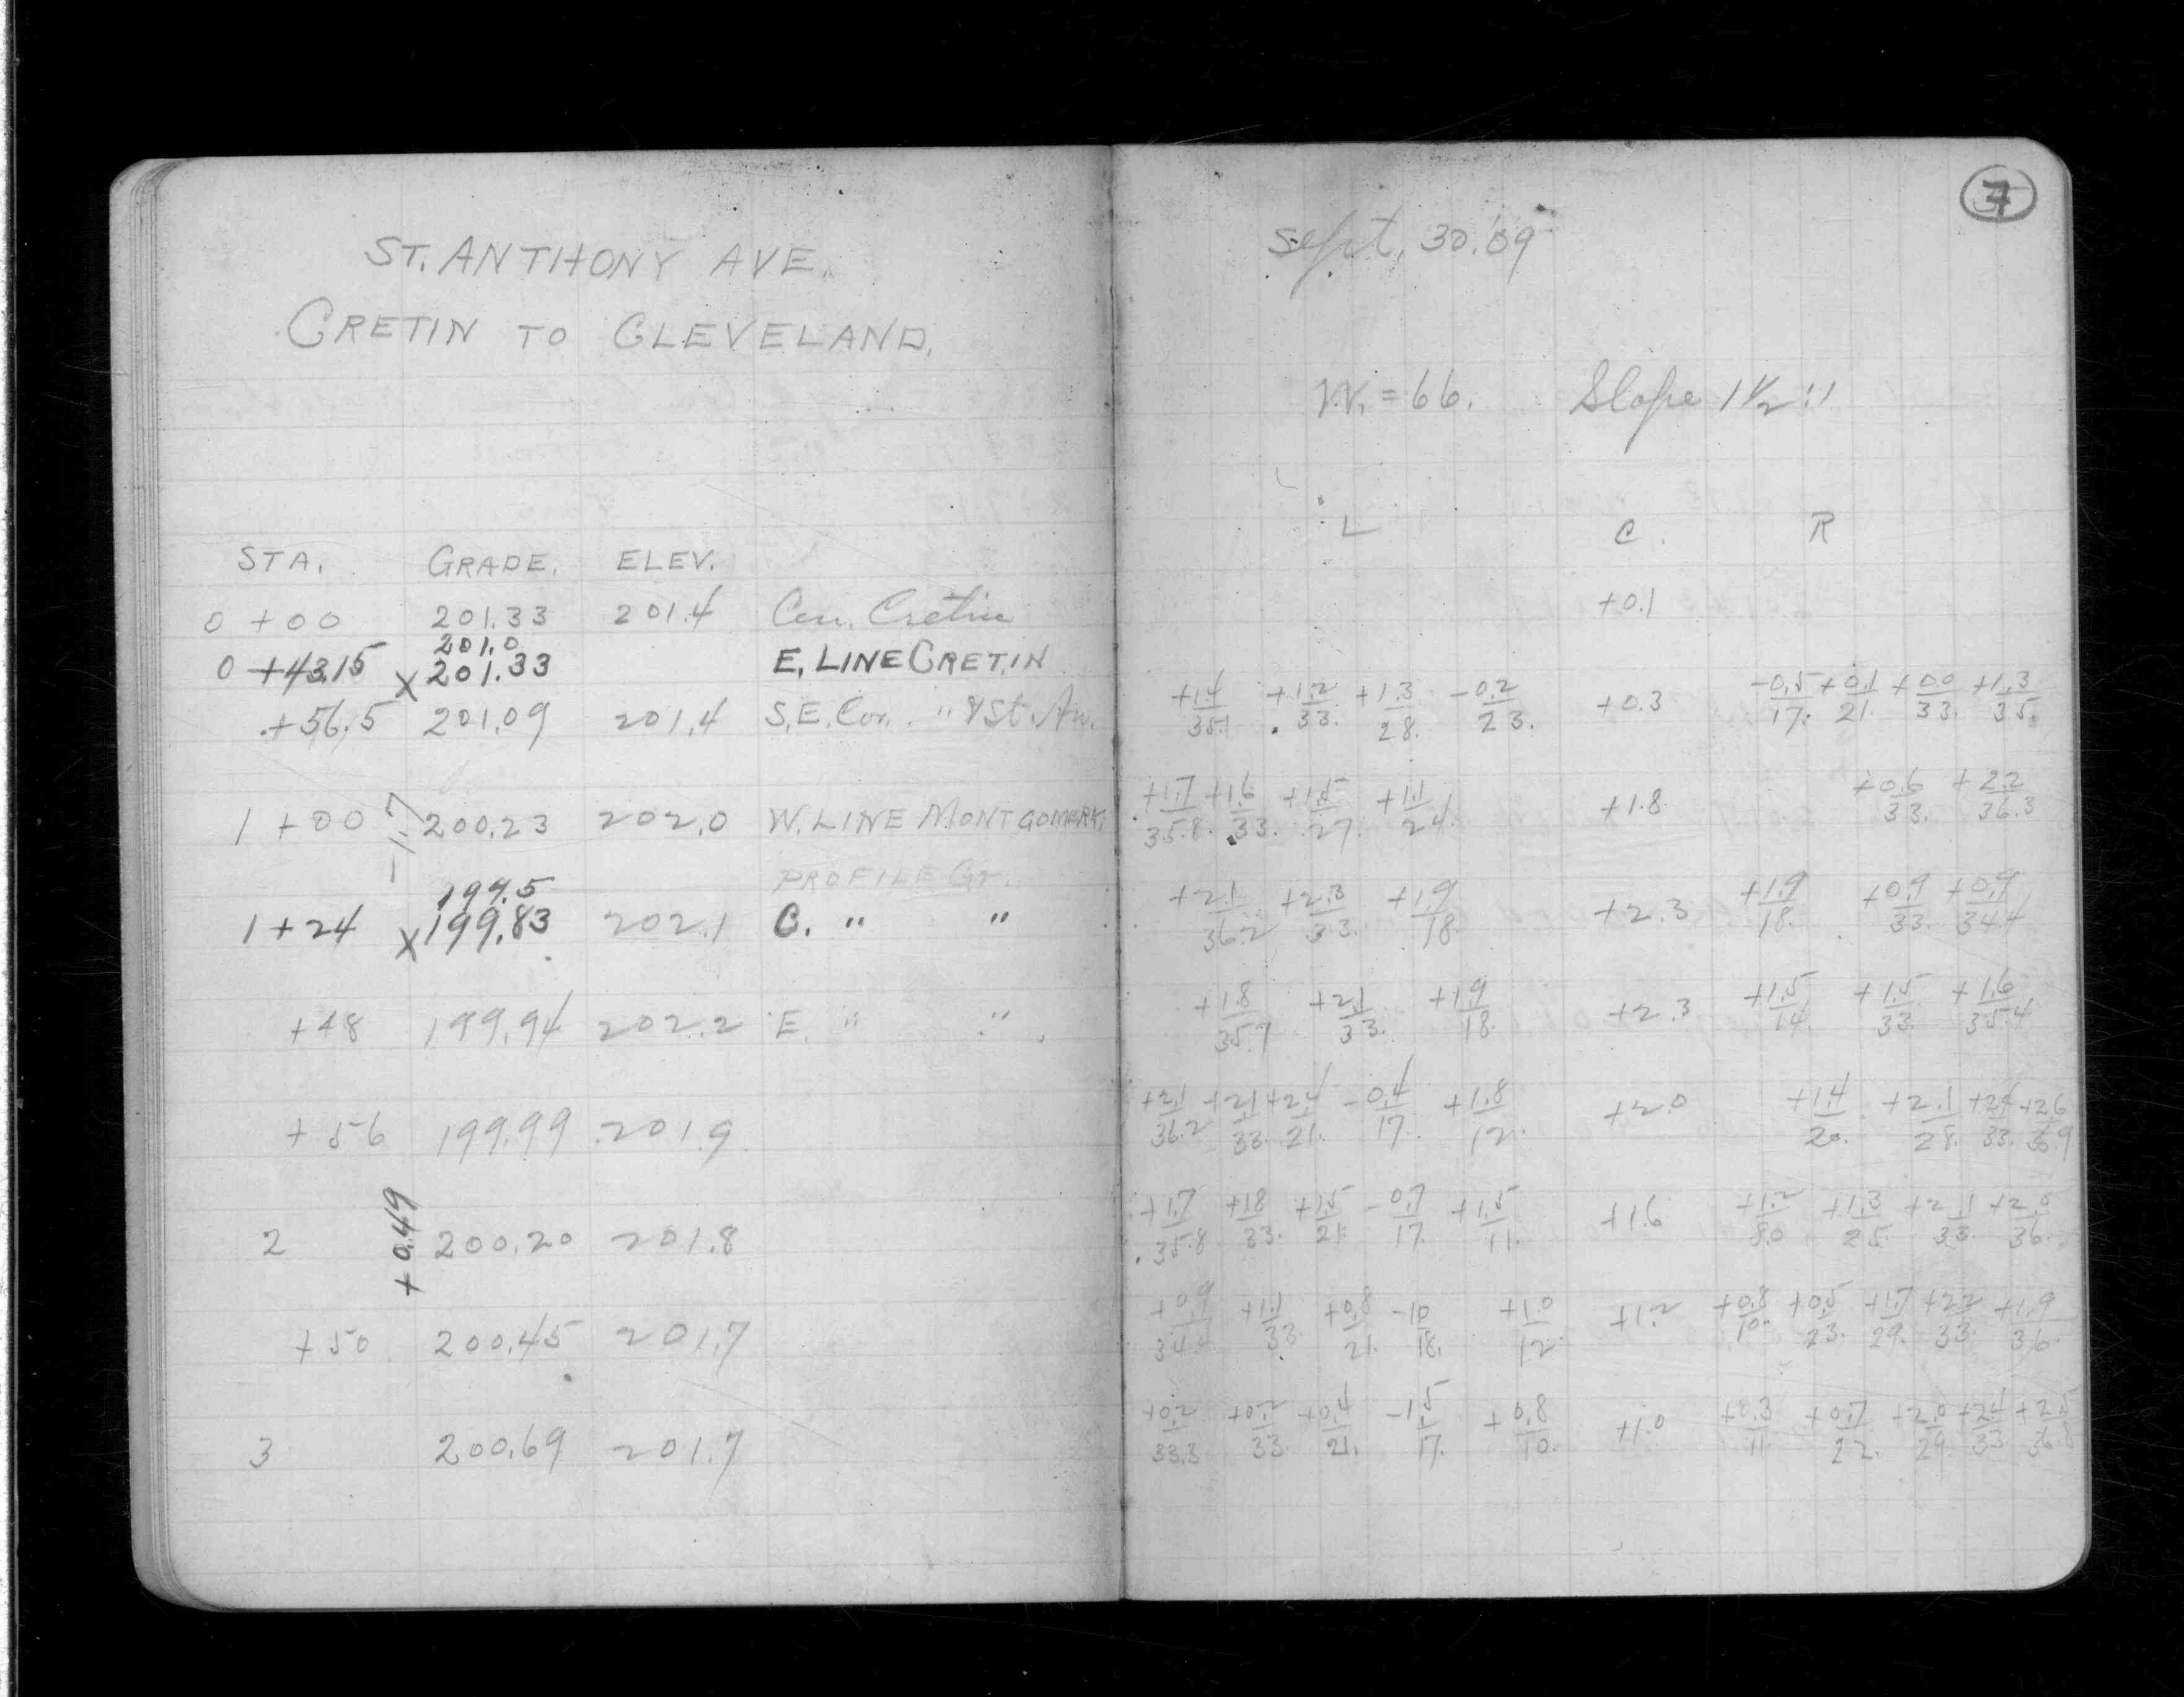 ST. ANTHONY AVE.
CRETIN TO CLEVELAND.
STA. GRADE. ELEV.
0 +00 201.33 201.4 Cen. Cretin
201.0
0 +43.15 x 201.33 E. LINE CRETIN
+56.5 201.09 201.4 S.E. Cor. " & St. An.
1 +00 -1.7 200.23 202.0 W. LINE MONTGOMERY.
PROFILE Gr.
199.5
1 +24 x 199.83 202.1 C. " "
+48 199.94 202.2 E. " "
+56 199.99 201.9
2 +0.49 200.20 201.8
+50 200.45 201.7
3 200.69 201.7
7
Sept. 30. '09
W. = 66. Slope 1 1/2 : 1
L C. R
+0.1
+1.4 +1.2 +1.3 -0.2 +0.3 -0.5 +0.1 +0.0 +1.3
35.1 33. 28. 23. 17. 21 33. 35.
+1.7 +1.6 +1.5 +1.1 +1.8 +0.6 +2.2
35.8 33. 27. 24. 33. 36.3
+2.1 +2.3 +1.9 +2.3 +1.9 +0.9 +0.9
36.2 33. 18. 18. 33. 34.4
+1.8 +2.1 +1.9 +2.3 +1.5 +1.5 +1.6
35.7 33. 18. 14. 33. 35.4
+2.1 +2.1 +2.4 -0.4 +1.8 +2.0 +1.4 +2.1 +2.6 +2.6
36.2 33. 21. 17. 12. 20. 28. 33. 36.9
+1.7 +1.8 +1.5 -0.7 +1.5 +1.6 +1.2 +1.3 +2.1 +2.0
35.8 33. 21. 17. 11. 8.0 25. 33. 36.
+0.9 +1.1 +0.8 -1.0 +1.0 +1.2 +0.8 +0.5 +1.7 +2.2 +1.9
34.4 33. 21. 18. 12 10. 23. 29. 33. 36.
+0.2 +0.2 +0.4 -1.5 +0.8 +1.0 +0.3 +0.7 +2.0 +2.4 +2.5
33.3 33. 21. 17. 10. 11. 22. 29. 33 36.8